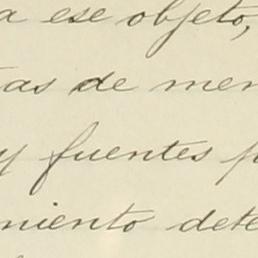 a ese objeto,
as de men
y fuentes p
miento dete